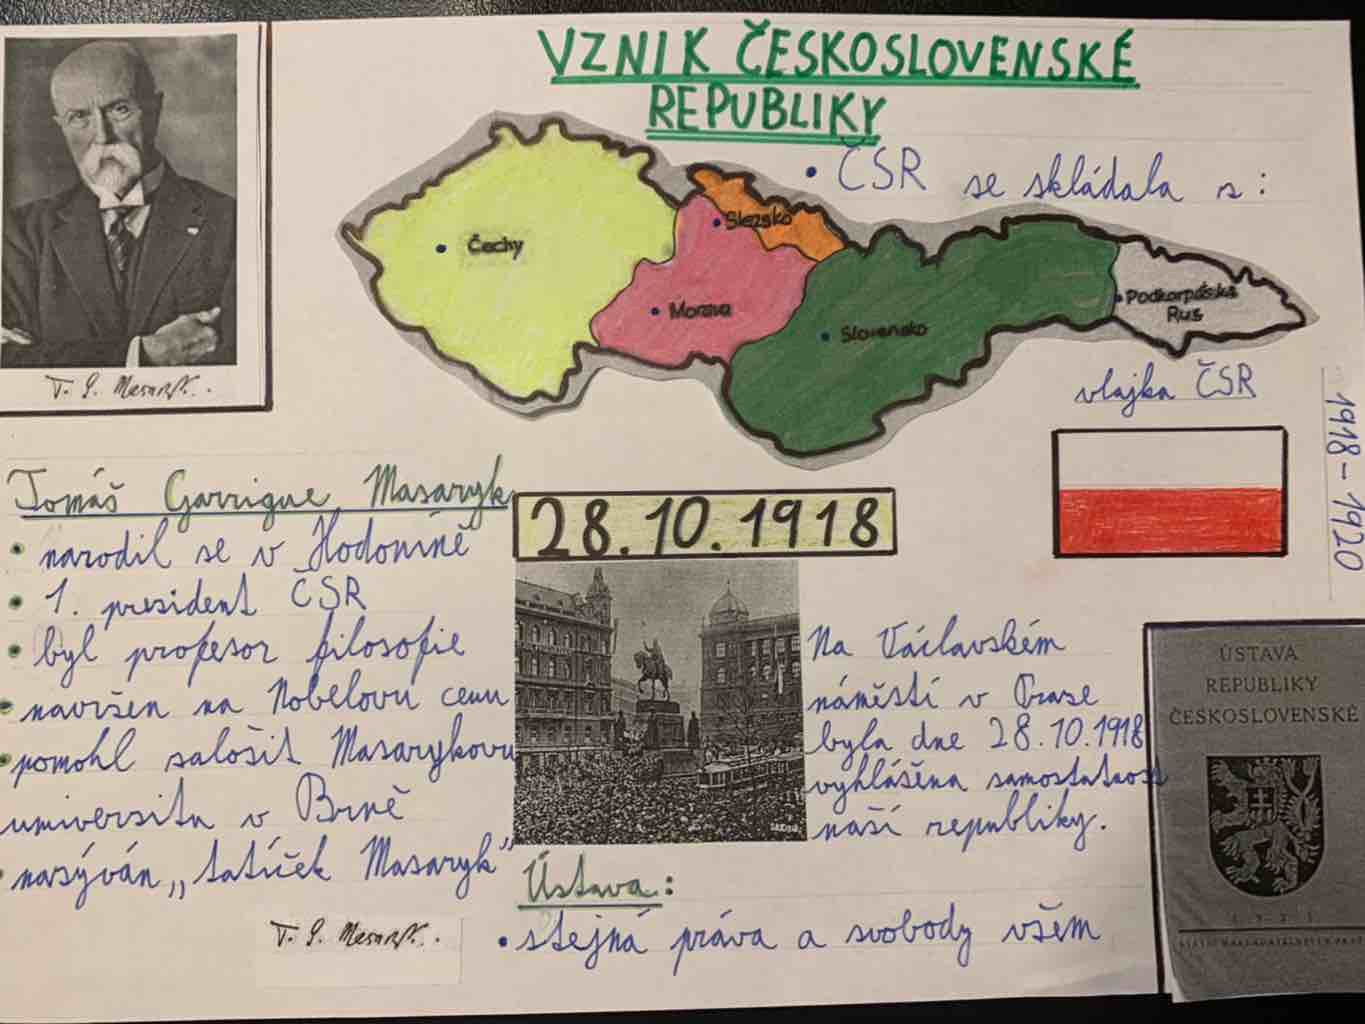 VZNIK ČESKOSLOVENSKÉ
REPUBLIKY
• ČSR se skládala z:
Čechy
Slezsko
Morava
Slovensko
Podkarpatská
Rus
T. G. Masaryk.
vlajka ČSR
1918-1920
Tomáš Garrigue Masaryk
• narodil se v Hodoníně
• 1. prezident ČSR
• byl profesor filosofie
• navržen na Nobelovu cenu
• pomohl založit Masarykovu
univerzitu v Brně
• nazýván „tatíček Masaryk"
T. G. Masaryk.
28.10.1918
Na Václavském
náměstí v Praze
byla dne 28.10.1918
vyhlášena samostatnost
naší republiky.
Ústava:
• stejná práva a svobody všem
ÚSTAVA
REPUBLIKY
ČESKOSLOVENSKÉ